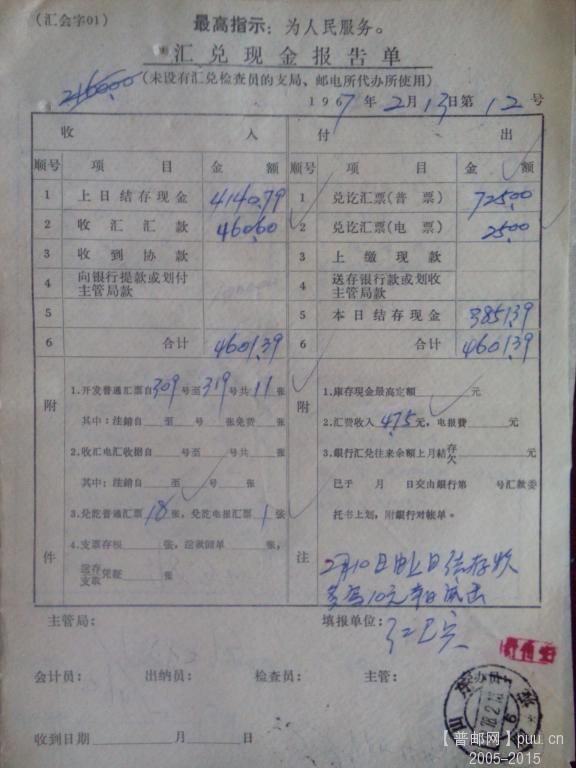 （汇会字01）
最高指示：为人民服务。
汇兑现金报告单
216000
（未设有汇兑检查员的支局、邮电所代办所使用）
1967年2月13日第12号
收 入 付 出
顺号 项目 金额 顺号 项目 金额
1 上日结存现金 4140.79 1 兑讫汇票（普票） 725.00
2 收汇汇款 460.60 2 兑讫汇票（电票） 25.00
3 收到协款 3 上缴现款
4 向银行提款或划付主管局款 4 送存银行款或划收主管局款
5 5 本日结存现金 3851.39
6 合计 4601.39 6 合计 4601.39
附件
1.开发普通汇票自309号至319号共11张
其中：注銷自 至 号 张免费 张
2.收汇电汇收据自 号至 号共 张
其中：注銷自 至 号 张
3.兑讫普通汇票18张，兑讫电报汇票1张
4.支票存根 张，送款回单 张，
送存支取凭証 张
附注
1.库存现金最高定额 元
2.汇费收入4.75元，电报费 元
3.銀行汇兑往来余额上月結存欠 元
已于 月 日交由銀行第 号汇款委
托书上划，附銀行对帐单。
2月10日由上日结存收
多写10元本日减去
主管局： 填报单位：
会计员： 出纳员： 检查员： 主管：
收到日期 年 月 日
【普邮网】puu.cn
2005-2015